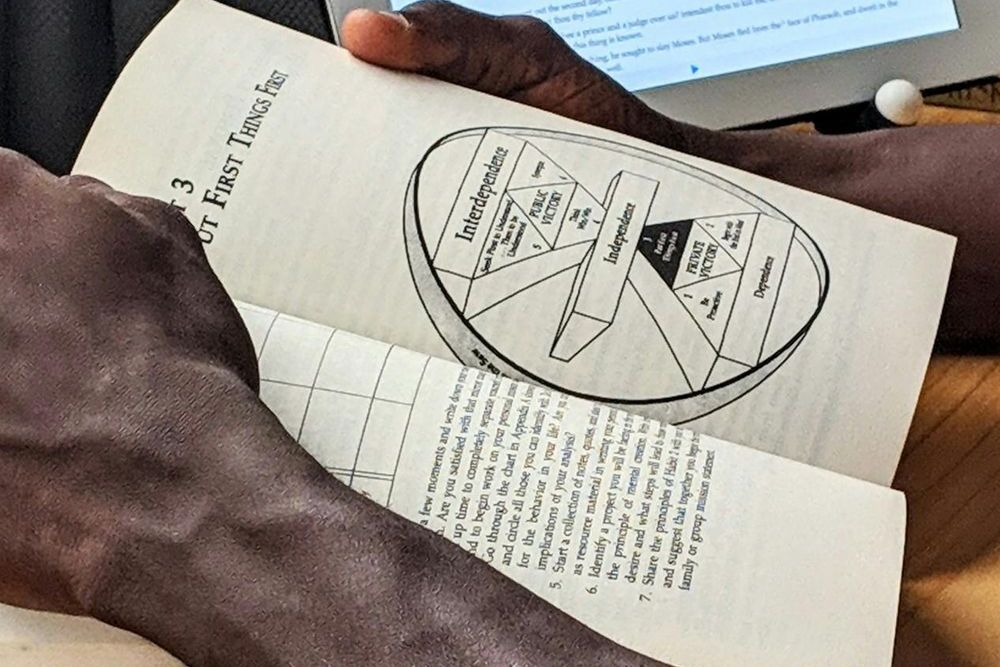 out the second day,
thou thy fellow?
a prince and a judge over us? intendest thou to kill
thing is known.
he sought to slay Moses. But Moses fled from the face of Pharaoh, and dwelt in the
T 3
UT FIRST THINGS FIRST
Interdependence
Seek First to Understand
Then to be
Understood
5
PUBLIC
VICTORY
Synergize
6
Think
Win/Win
4
Independence
3
Put First
Things First
PRIVATE
VICTORY
1
Be
Proactive
2
Begin with
the End in Mind
Dependence
the Saw
a few moments and write down
Are you satisfied with that
up time to completely separate
to begin work on your personal
Go through the chart in Appendix A
and circle all those you can identify
for the behavior in your life? Are you
implications of your analysis?
5. Start a collection of notes, quotes, and
as resource material in writing your
6. Identify a project you will be facing in
the principle of mental creation.
desire and what steps will lead to
7. Share the principles of Habit 2 with
and suggest that together you begin
family or group mission statement.